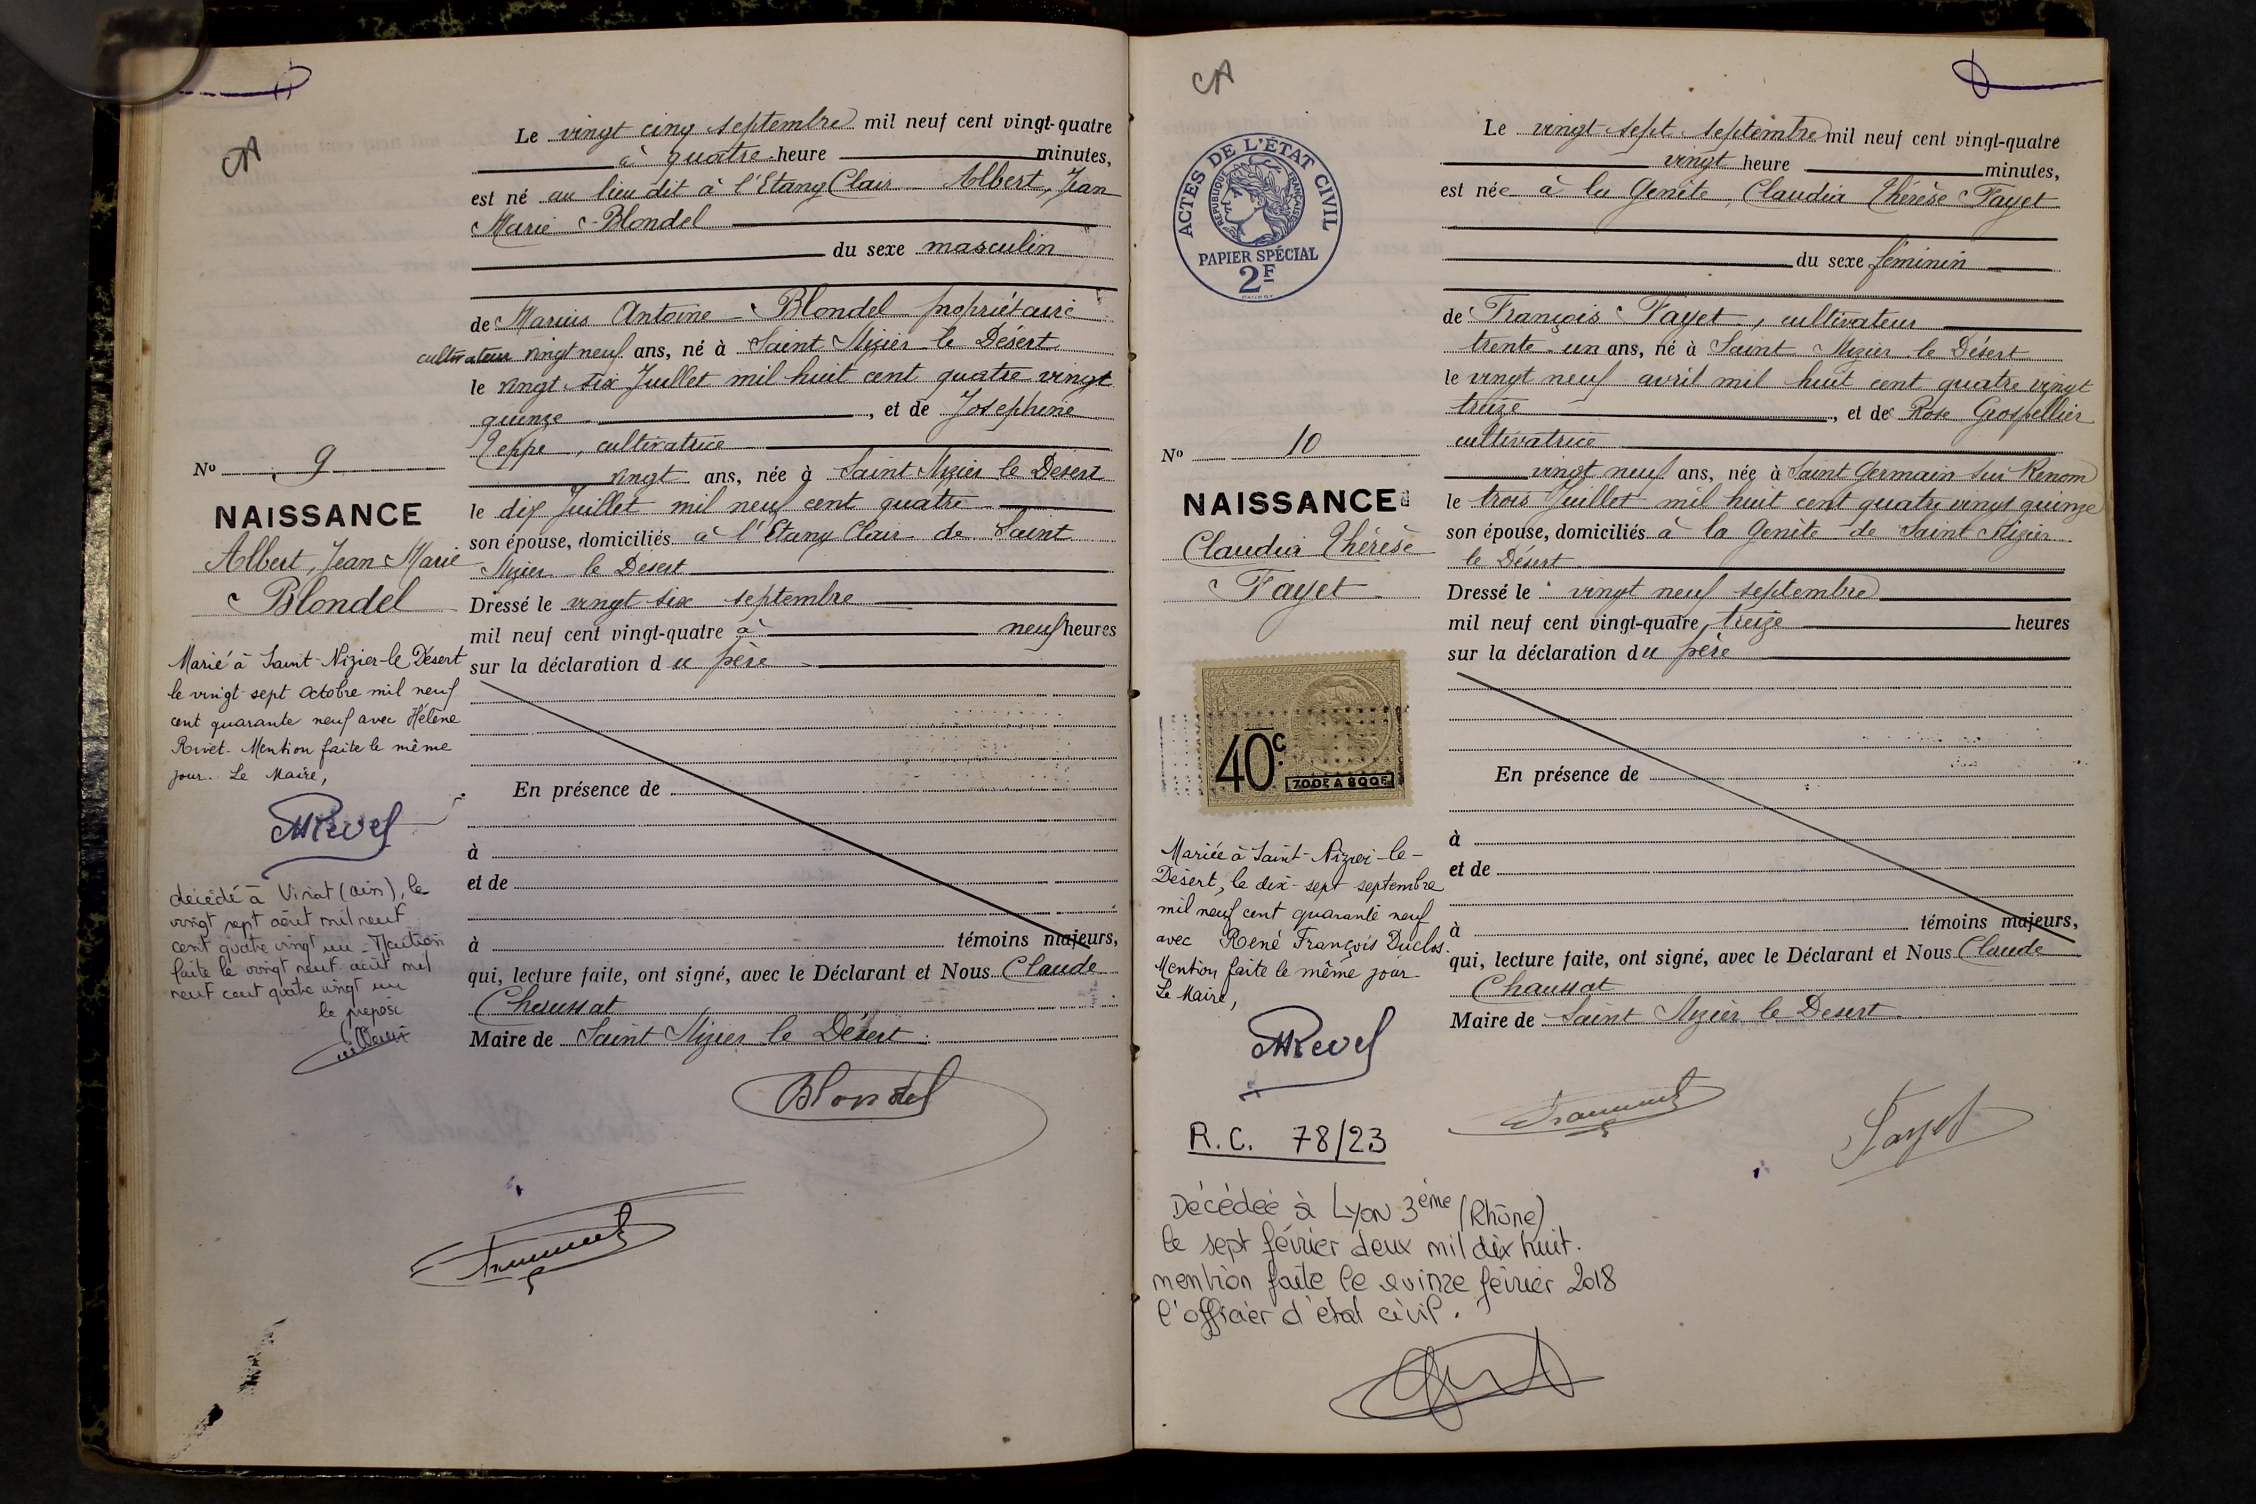 CA
Le vingt cinq septembre mil neuf cent vingt-quatre
à quatre heure minutes,
est né au lieu dit à l'Etang Clair Albert, Jean
Marie Blondel
du sexe masculin
de Marius Antoine Blondel propriétaire
cultivateur vingt neuf ans, né à Saint Nizier le Désert
le vingt six Juillet mil huit cent quatre vingt
quinze, et de Josephine
Teppe, cultivatrice
vingt ans, née à Saint Nizier le Désert
le dix Juillet mil neuf cent quatre
son épouse, domiciliés à l'Etang Clair de Saint
Nizier le Desert
Dressé le vingt six septembre
mil neuf cent vingt-quatre à neuf heures
sur la déclaration du père
En présence de
à
et de
à témoins majeurs,
qui, lecture faite, ont signé, avec le Déclarant et Nous Claude
Chaussat
Maire de Saint Nizier le Désert
Blondel
No 9
NAISSANCE
Albert, Jean Marie
Blondel
Marié à Saint-Nizier-le Désert
le vingt sept octobre mil neuf
cent quarante neuf avec Hélène
Rivet. Mention faite le même
jour. Le Maire,
décédé à Viriat (ain), le
vingt sept août mil neuf
cent quatre vingt un - Mention
faite le vingt neuf août mil
neuf cent quatre vingt un
le préposé
CA
ACTES DE L'ÉTAT CIVIL
RÉPUBLIQUE FRANÇAISE
PAPIER SPÉCIAL
2F
Le vingt sept septembre mil neuf cent vingt-quatre
vingt heure minutes,
est née à la Genète, Claudia Thérèse Fayet
du sexe féminin
de François Fayet, cultivateur
trente un ans, né à Saint Nizier le Désert
le vingt neuf avril mil huit cent quatre vingt
treize, et de Rose Grospellier
cultivatrice
vingt neuf ans, née à Saint Germain sur Renom
le trois Juillet mil huit cent quatre vingt quinze
son épouse, domiciliés à la Genète de Saint Nizier
le Désert
Dressé le vingt neuf septembre
mil neuf cent vingt-quatre, treize heures
sur la déclaration du père
En présence de
à
et de
à témoins majeurs,
qui, lecture faite, ont signé, avec le Déclarant et Nous Claude
Chaussat
Maire de Saint Nizier le Desert
Fayet
No 10
NAISSANCE
Claudia Thérèse
Fayet
40c
700F A 800F
Mariée à Saint-Nizier-le-
Désert, le dix-sept septembre
mil neuf cent quarante neuf
avec René François Duclos.
Mention faite le même jour
Le Maire,
R.C. 78/23
Décédée à Lyon 3ème (Rhône)
le sept février deux mil dix huit.
mention faite le quinze février 2018
l'officier d'état civil.